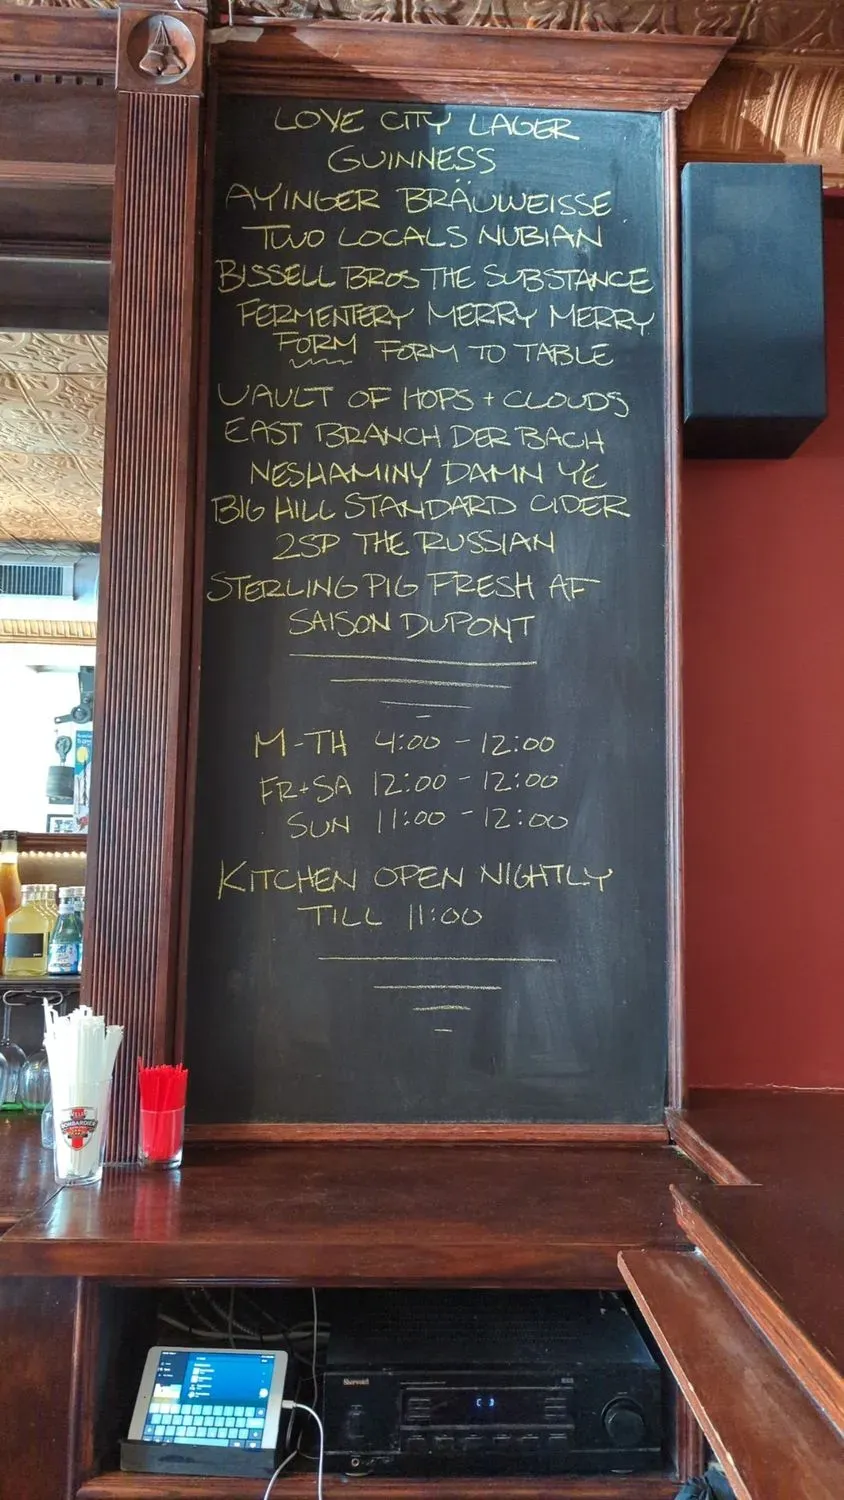 LOVE CITY LAGER
GUINNESS
AYINGER BRÄUWEISSE
TWO LOCALS NUBIAN
BISSELL BROS THE SUBSTANCE
FERMENTERY MERRY MERRY
FORM FORM TO TABLE
VAULT OF HOPS + CLOUDS
EAST BRANCH DER BACH
NESHAMINY DAMN YE
BIG HILL STANDARD CIDER
2SP THE RUSSIAN
STERLING PIG FRESH AF
SAISON DUPONT
M-TH 4:00 - 12:00
FR+SA 12:00 - 12:00
SUN 11:00 - 12:00
KITCHEN OPEN NIGHTLY
TILL 11:00
BOMBARDIER
Sherwood